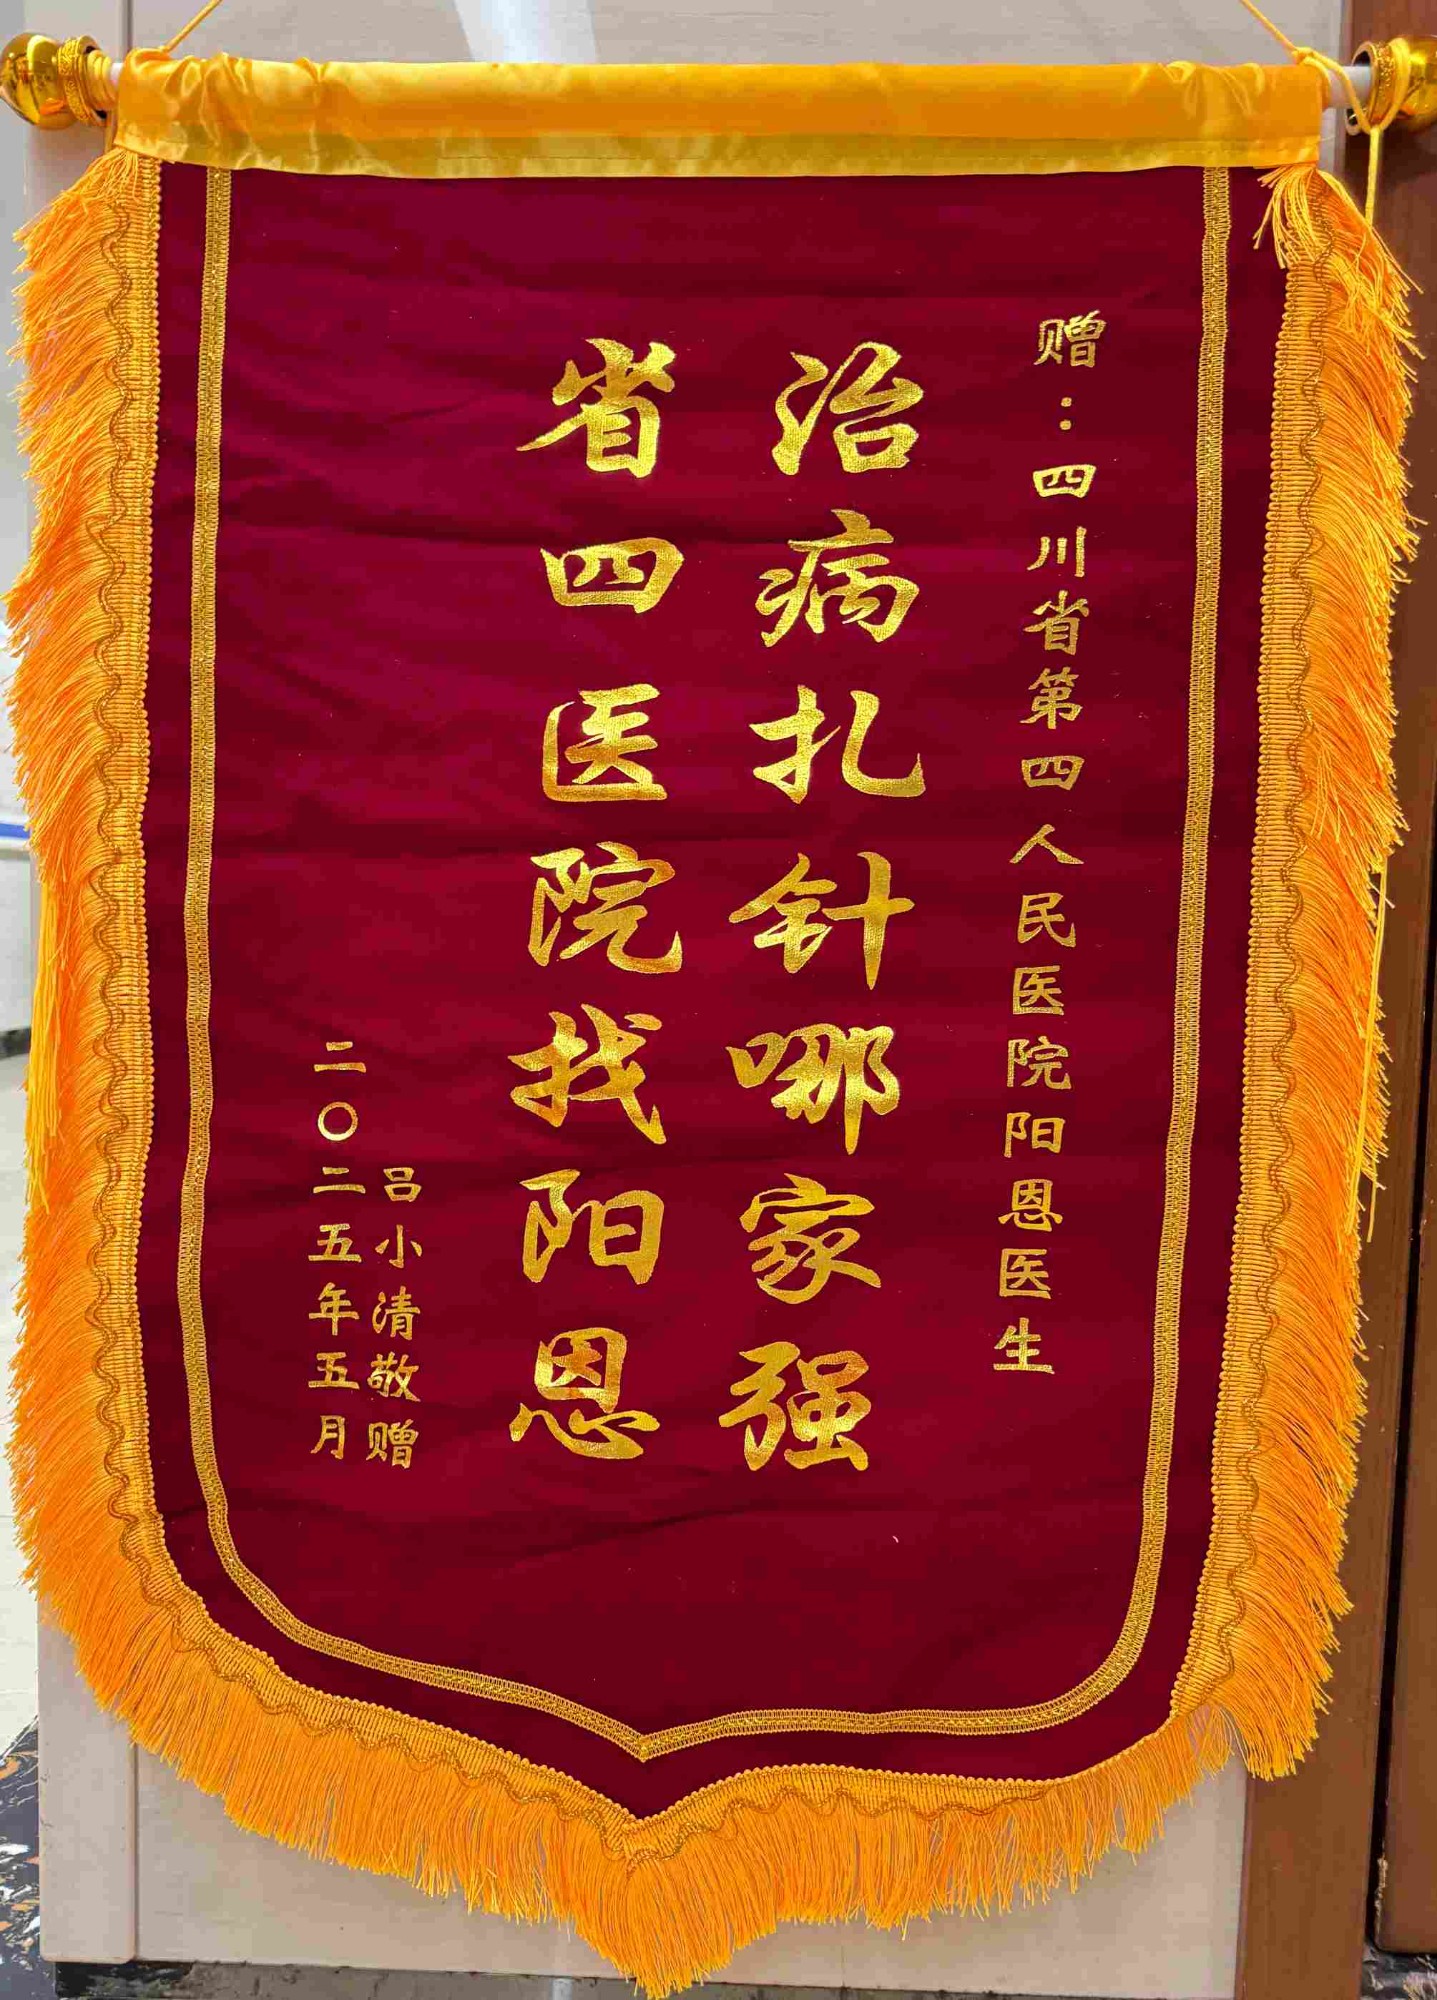 赠：四川省第四人民医院阳恩医生
治病扎针哪家强
省四医院找阳恩
吕小清敬赠
二〇二五年五月